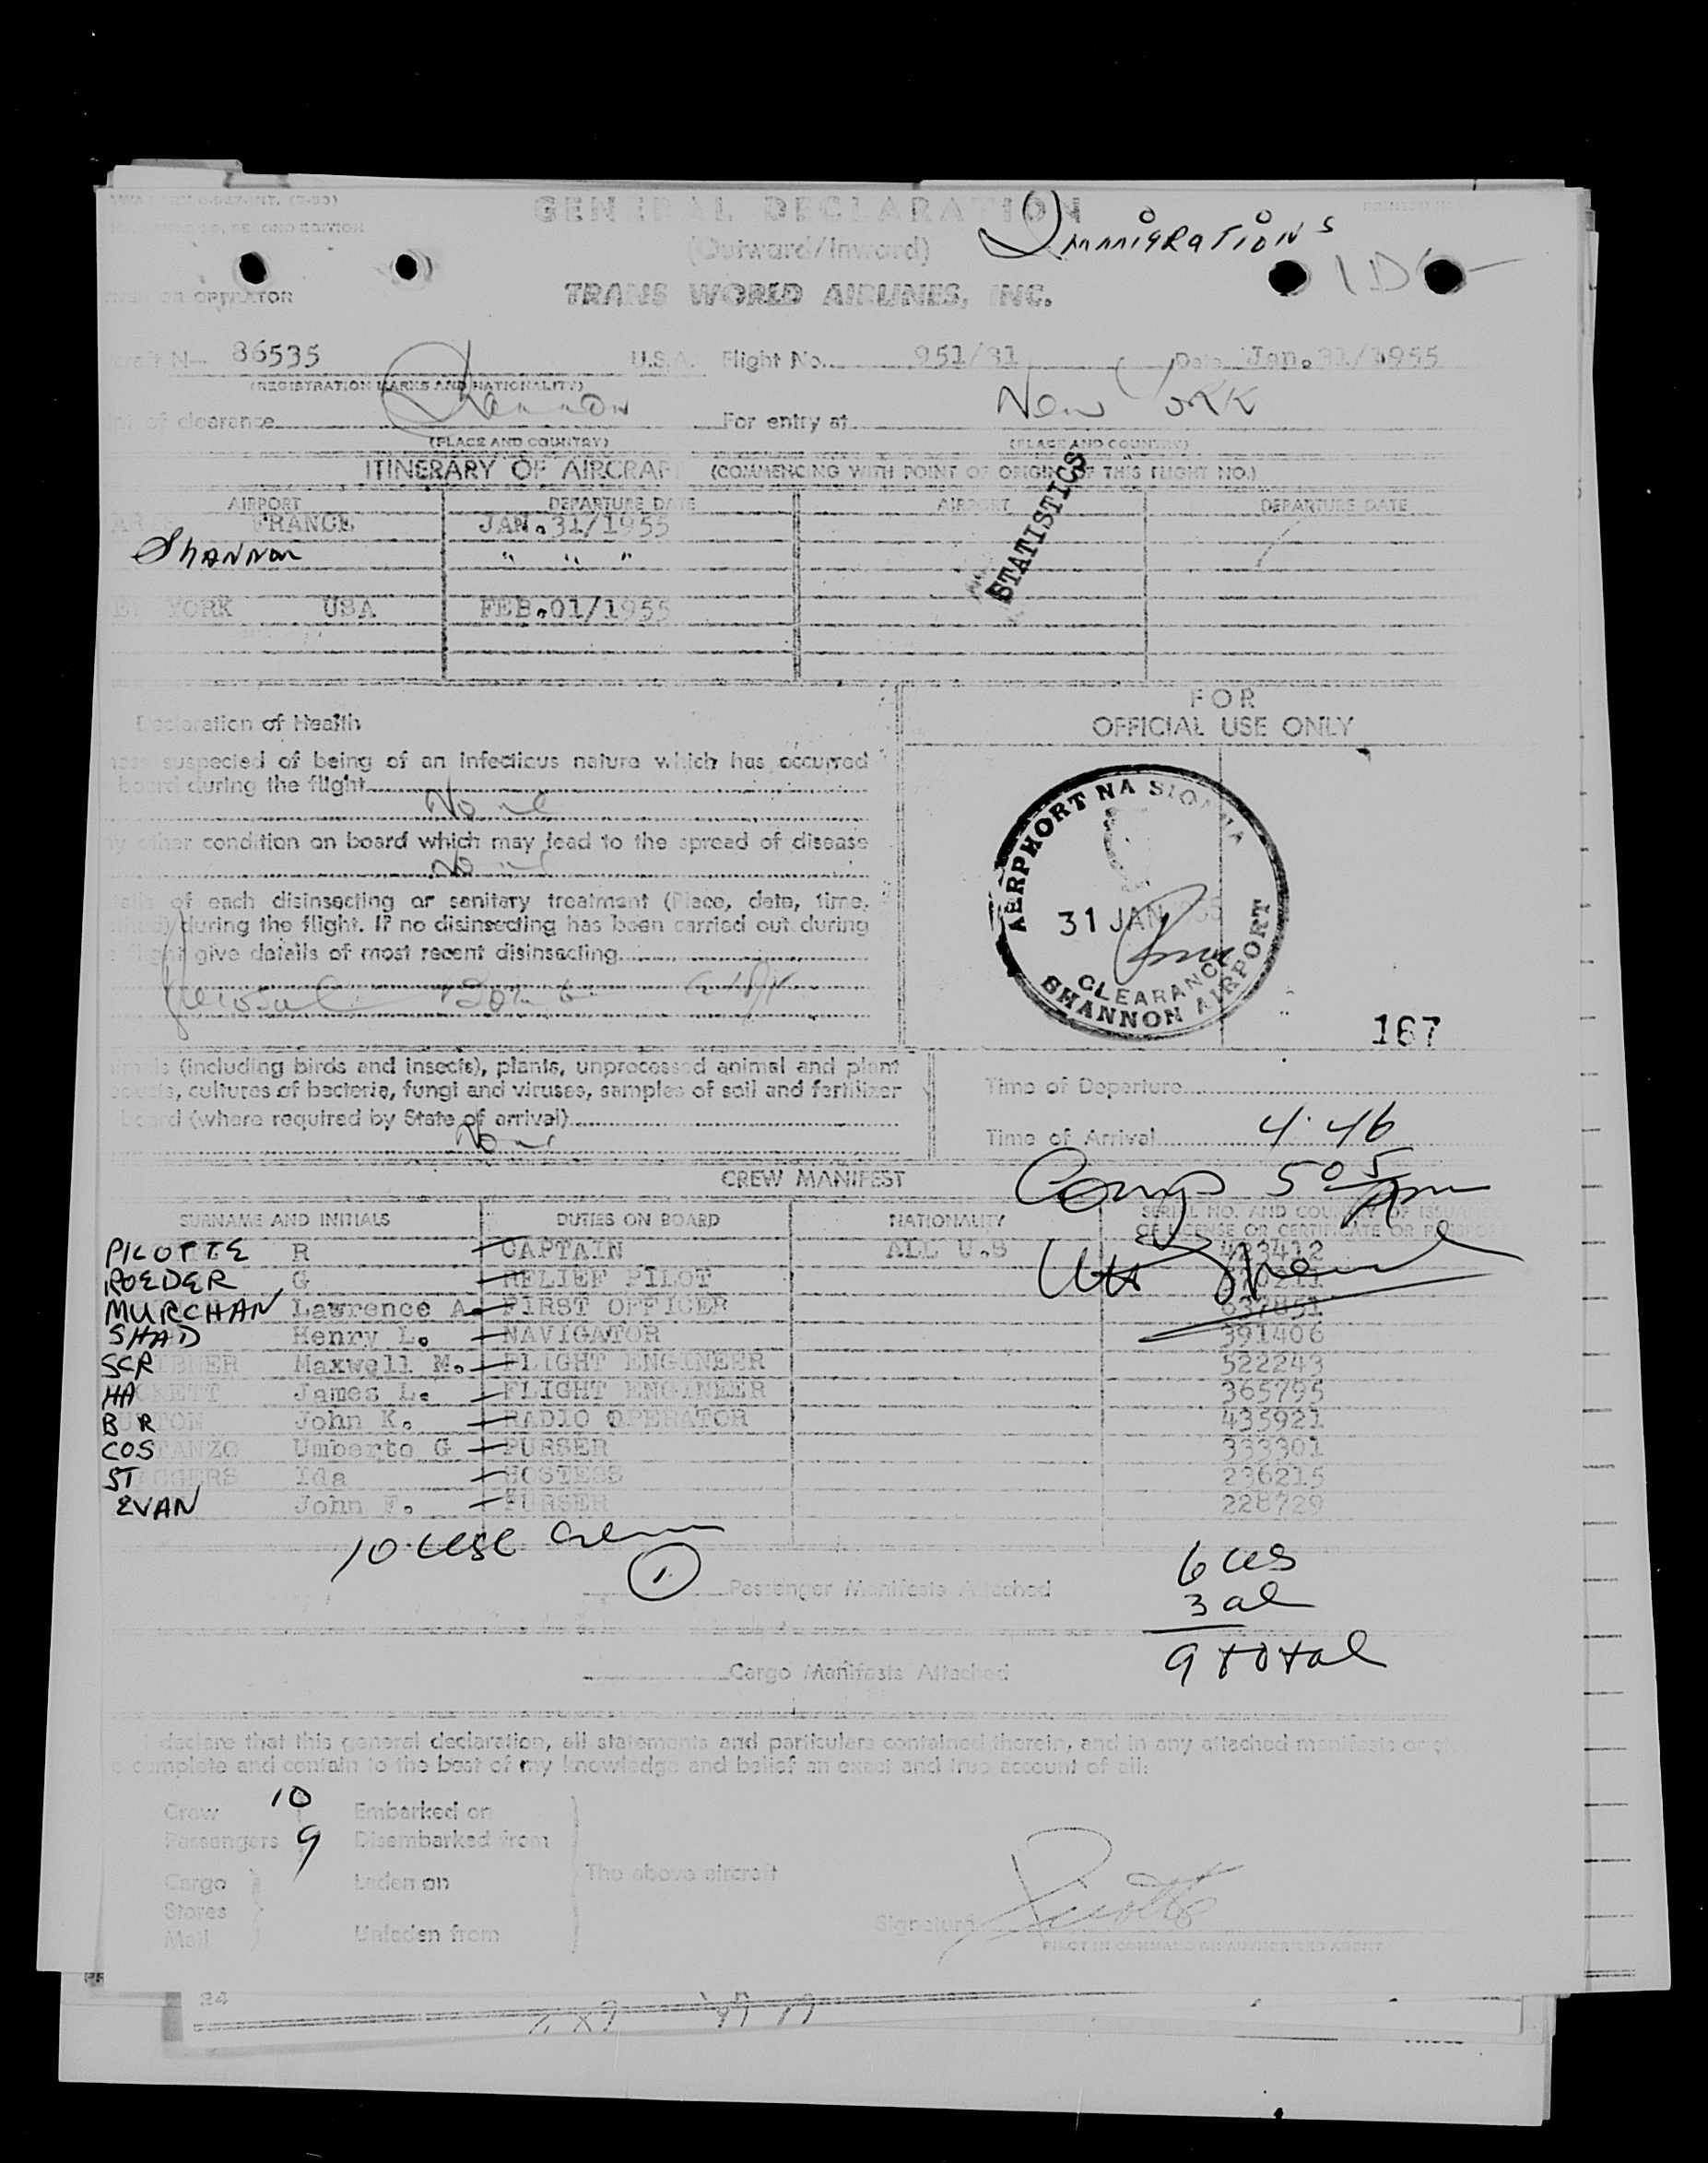 GENERAL DECLARATION
(Outward/Inward)
Immigrations
OR OPERATOR
TRANS WORLD AIRLINES, INC.
86535 U.S.A. Flight No. 951/31 Date Jan. 31/1955
(REGISTRATION MARKS AND NATIONALITY)
of clearance Shannon For entry at New York
(PLACE AND COUNTRY) (PLACE AND COUNTRY)
ITINERARY OF AIRCRAF (COMMENCING WITH POINT OF ORIGIN OF THIS FLIGHT NO.)
AIRPORT DEPARTURE DATE AIRPORT DEPARTURE DATE
FRANCE JAN.31/1955
SHANNON " " "
STATISTICS
YORK USA FEB.01/1955
FOR
OFFICIAL USE ONLY
Declaration of Health
suspected of being of an infectious nature which has occurred
board during the flight
None
other condition on board which may lead to the spread of disease
None
of each disinsecting or sanitary treatment (Place, date, time,
during the flight. If no disinsecting has been carried out during
flight give details of most recent disinsecting
AERPHORT NA SIONNA
31 JAN 1955
CLEARANCE
SHANNON AIRPORT
167
(including birds and insects), plants, unprocessed animal and plant
cultures of bacteria, fungi and viruses, samples of soil and fertilizer
board (where required by State of arrival)
None
Time of Departure
Time of Arrival 4.46
CREW MANIFEST
SURNAME AND INITIALS DUTIES ON BOARD NATIONALITY SERIAL NO. AND COUNTRY OF ISSUANCE
OF LICENSE OR CERTIFICATE OR PASSPORT
PILOTTE R CAPTAIN ALL U.S 423412
ROEDER G RELIEF PILOT
MURCHAN Lawrence A. FIRST OFFICER 637851
SHAD Henry L. NAVIGATOR 391406
SCRIBNER Maxwell M. FLIGHT ENGINEER 522243
HACKETT James L. FLIGHT ENGINEER 365795
BURTON John K. RADIO OPERATOR 435921
COSTANZO Umberto G PURSER 333301
ST GGERS Ida HOSTESS 236215
EVAN John F. PURSER 228729
10 USC Crew
1 Passenger Manifests Attached
6 US
3 al
9 total
Cargo Manifests Attached
I declare that this general declaration, all statements and particulars contained therein, and in any attached manifests or
complete and contain to the best of my knowledge and belief an exact and true account of all:
Crew 10 Embarked on
Passengers 9 Disembarked from
The above aircraft
Cargo Laden on
Stores
Mail Unladen from
Signature
PILOT IN COMMAND OR AUTHORIZED AGENT
24